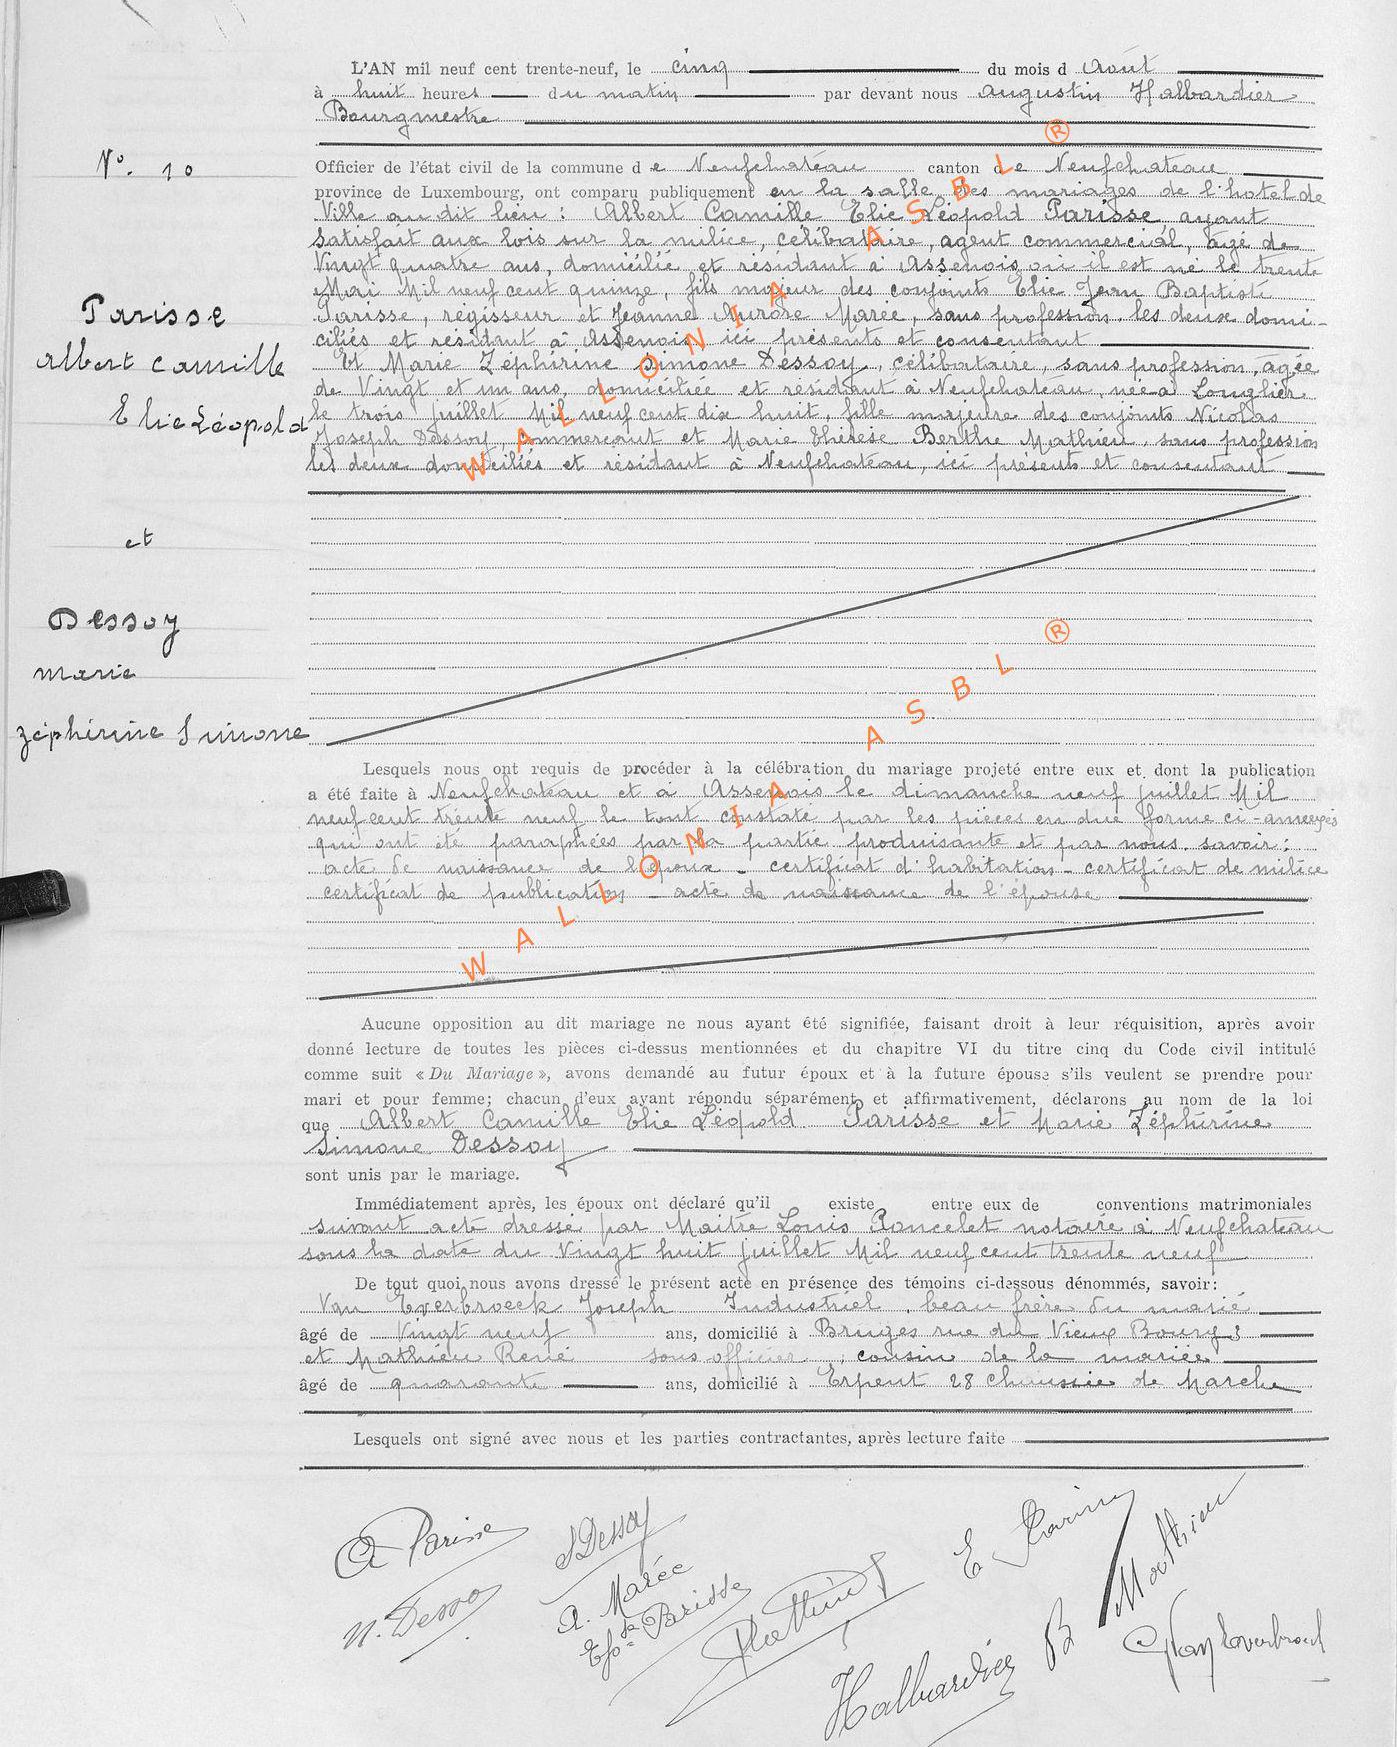 L'AN mil neuf cent trente-neuf, le cinq du mois d Août
à huit heures du matin par devant nous Augustin Halbardier
Bourgmestre
N° 10
Officier de l'état civil de la commune de Neufchateau canton de Neufchateau
province de Luxembourg, ont comparu publiquement en la salle des mariages de l'hotel de
Ville au dit lieu : Albert Camille Elie Léopold Parisse, ayant
satisfait aux lois sur la milice, célibataire, agent commercial, âgé de
Vingt quatre ans, domicilié et résidant à Assenois où il est né le trente
Mai Mil neuf cent quinze, fils majeur des conjoints Elie Jean Baptiste
Parisse, régisseur et Jeanne Aurore Marée, sans profession, les deux domi-
ciliés et résidant à Assenois, ici présents et consentant
Et Marie Zéphirine Simone Dessoy, célibataire, sans profession, agée
de Vingt et un ans, domiciliée et résidant à Neufchateau, née à Longlier
le trois juillet Mil neuf cent dix huit, fille majeure des conjoints Nicolas
Joseph Dessoy, commerçant et Marie Thérèse Berthe Mathieu, sans profession
les deux domiciliés et résidant à Neufchateau, ici présents et consentant
Parisse
Albert Camille
Elie Léopold
et
Dessoy
Marie
Zéphirine Simone
Lesquels nous ont requis de procéder à la célébration du mariage projeté entre eux et dont la publication
a été faite à Neufchateau et à Assenois le dimanche neuf juillet Mil
neuf cent trente neuf le tout constaté par les pièces en due forme ci-annexées
qui ont été paraphées par la partie produisante et par nous. savoir :
acte de naissance de l'époux - certificat d'habitation - certificat de milice
certificat de publication - acte de naissance de l'épouse
Aucune opposition au dit mariage ne nous ayant été signifiée, faisant droit à leur réquisition, après avoir
donné lecture de toutes les pièces ci-dessus mentionnées et du chapitre VI du titre cinq du Code civil intitulé
comme suit « Du Mariage », avons demandé au futur époux et à la future épouse s'ils veulent se prendre pour
mari et pour femme; chacun d'eux ayant répondu séparément et affirmativement, déclarons au nom de la loi
que Albert Camille Elie Léopold Parisse et Marie Zéphirine
Simone Dessoy
sont unis par le mariage.
Immédiatement après, les époux ont déclaré qu'il existe entre eux de conventions matrimoniales
suivant acte dressé par Maitre Louis Poncelet notaire à Neufchateau
sous la date du Vingt huit juillet Mil neuf cent trente neuf
De tout quoi nous avons dressé le présent acte en présence des témoins ci-dessous dénommés, savoir:
Van Everbroeck Joseph Industriel, beau frère du marié
âgé de Vingt neuf ans, domicilié à Bruges rue du Vieux Bourg 3
et Mathieu René sous officier, cousin de la mariée
âgé de quarante ans, domicilié à Erpent 28 chaussée de Marche
Lesquels ont signé avec nous et les parties contractantes, après lecture faite
A Parisse
S Dessoy
E Parisse
B Mathieu
N. Dessoy
A. Marée
Epse Parisse
R Mathieu
Halbardier
J Van Everbroeck
WALLONIA ASBL ®
WALLONIA ASBL ®